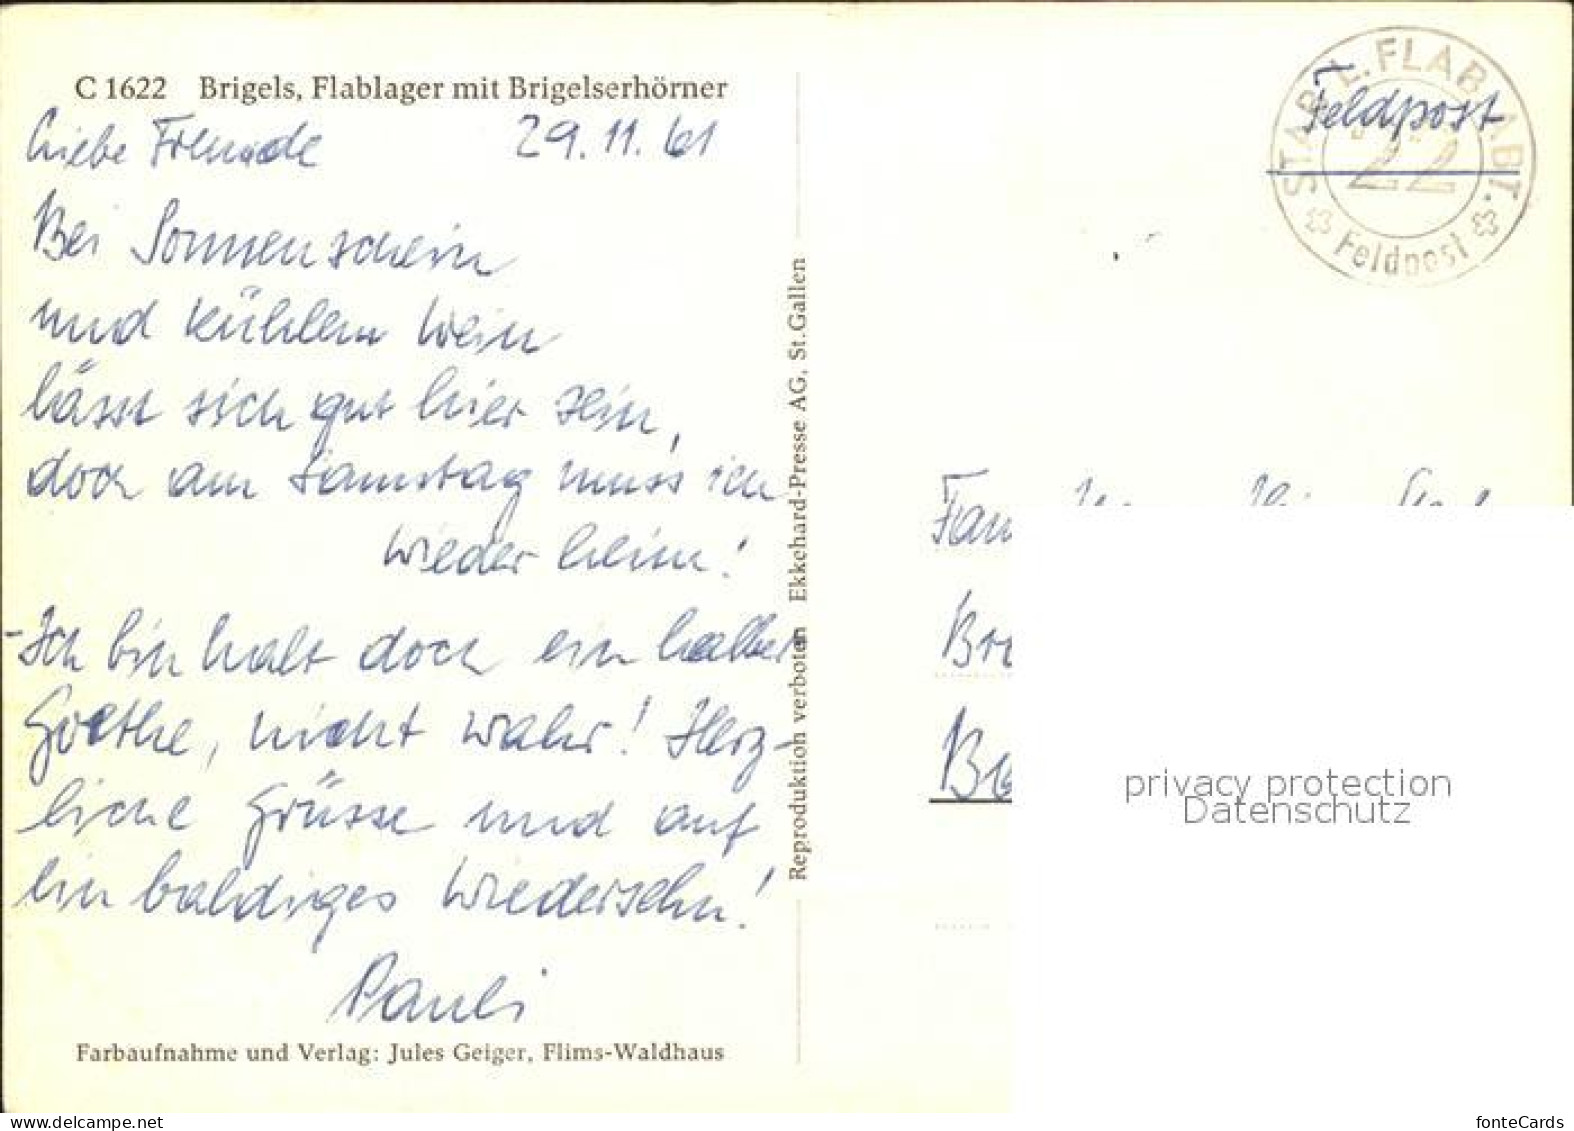 C 1622 Brigels, Flablager mit Brigelserhörner
Liebe Freunde 29.11.61
Bei Sonnenschein
und kühlem Wein
lässt sich gut hier sein,
doch am Samstag muss ich
wieder heim!
-Ich bin halt doch ein halber
Goethe, nicht wahr! Herz-
liche Grüsse und auf
ein baldiges Wiedersehn!
Pauli
Farbaufnahme und Verlag: Jules Geiger, Flims-Waldhaus
Reproduktion verboten Ekkehard-Presse AG, St. Gallen
STAB L. FLAB ABT.
22
Feldpost
Feldpost
Fam
privacy protection
Datenschutz
fonteCards